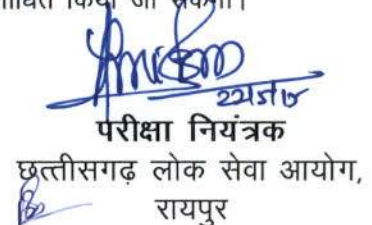 किया जा सकेगा।
परीक्षा नियंत्रक
छत्तीसगढ़ लोक सेवा आयोग,
रायपुर